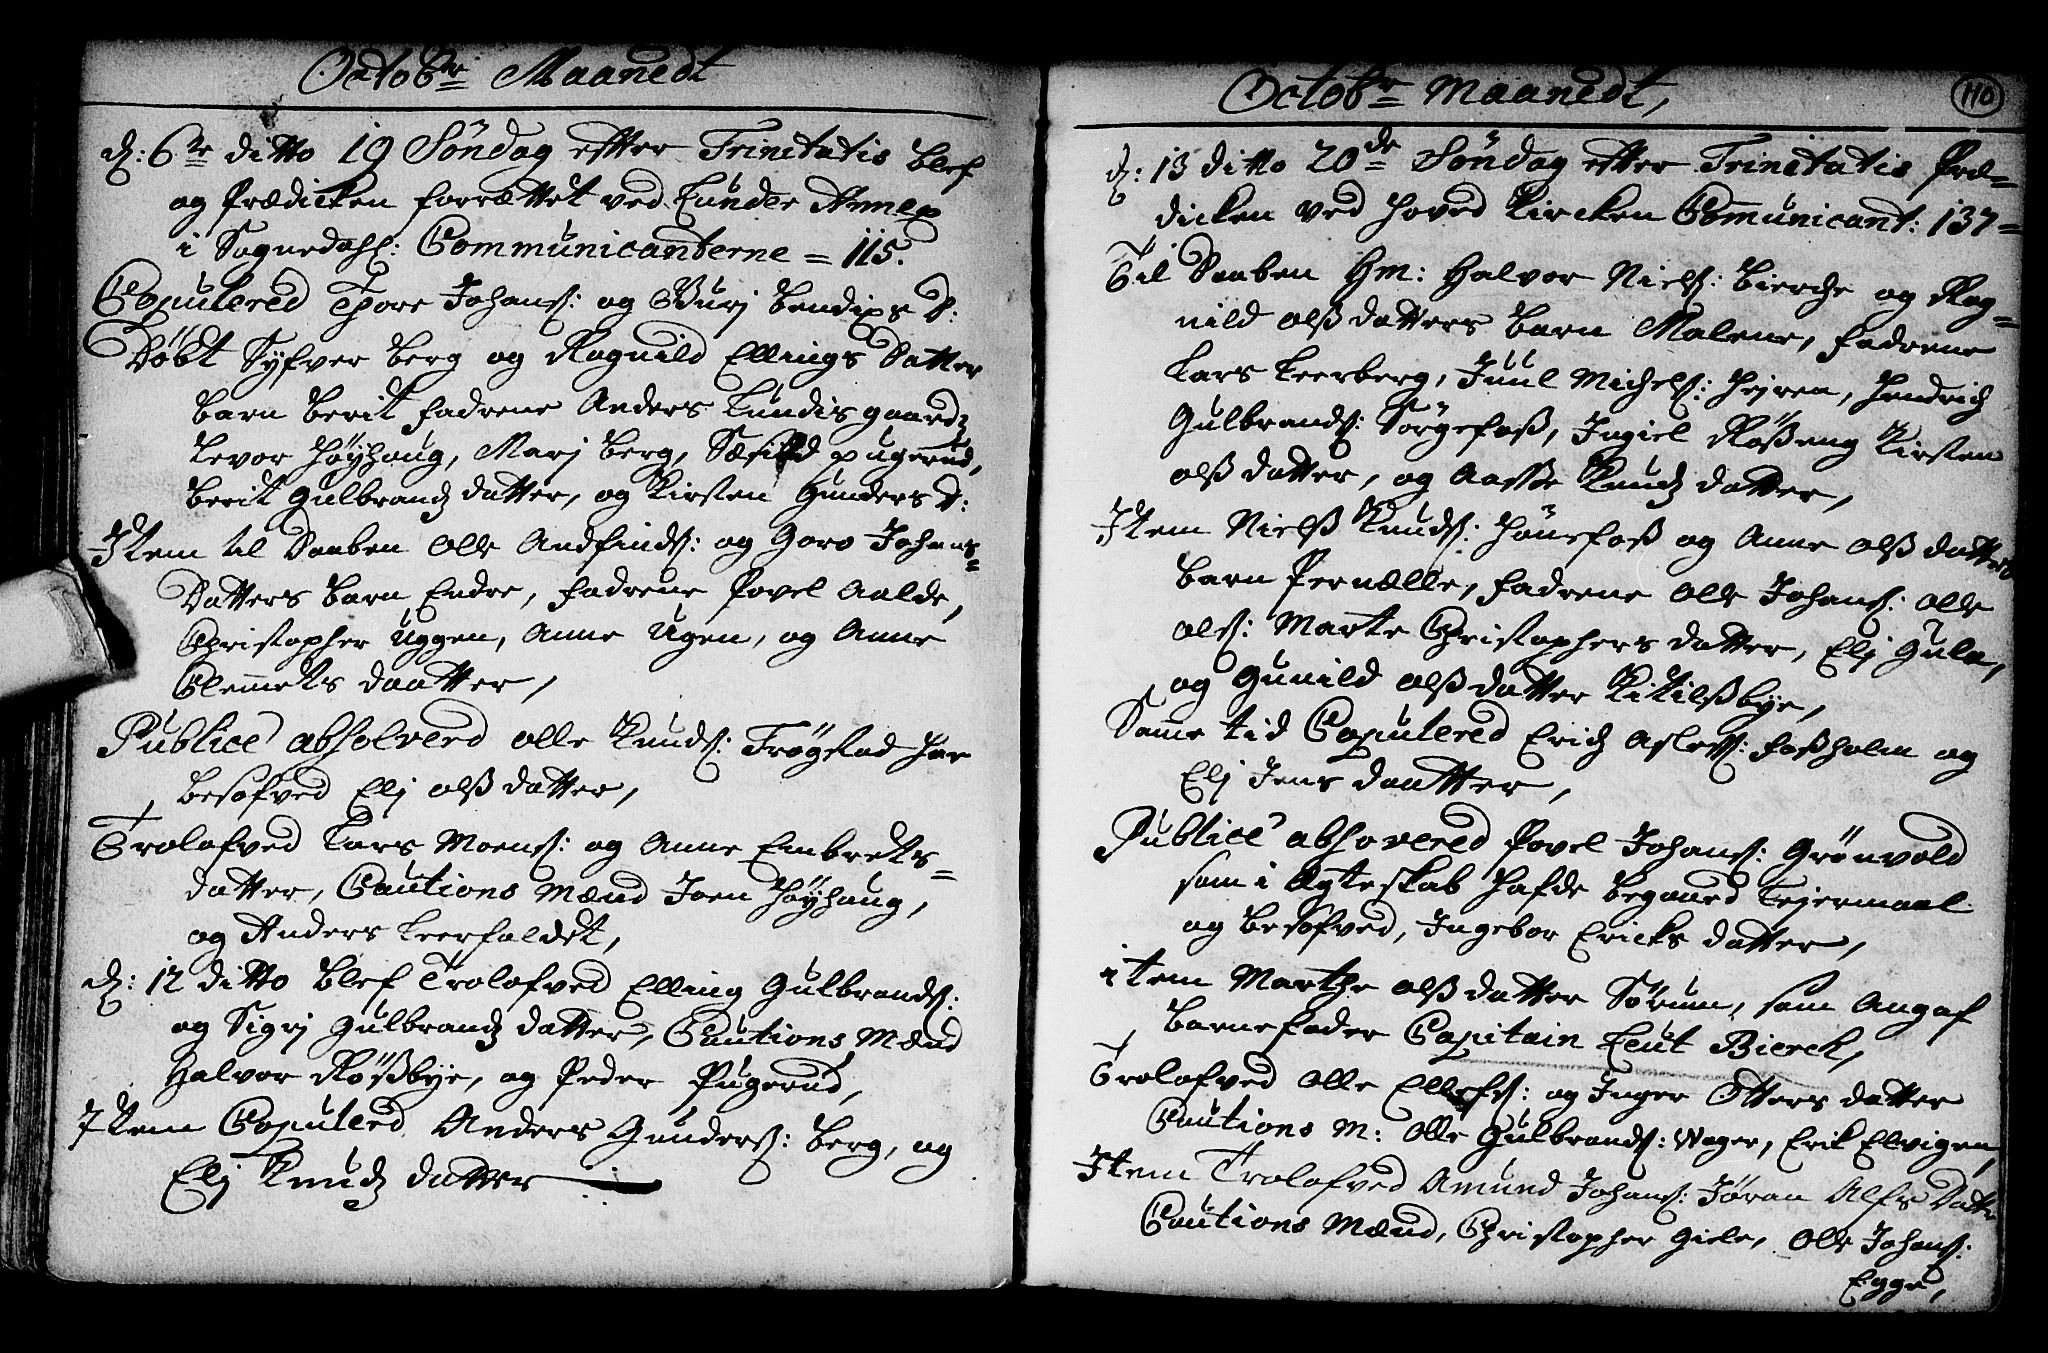 Octobr Maanedt
d: 6te ditto 19 Söndag efter Trinitatis blef
og Prædicken forrættet ved Lunder Annex
i Sognedahl: Communicanterne = 115.
Copulered Thore Johans: og Gurj Bendixs D:
Döbt Syfver Berg og Ragnild Ellings Datter
barn Berit fadrene Anders Lundisgaard
Levor Höyhaug, Marj Berg, Pugerud,
Berit Gulbrands datter, og Kirsten Gunders D:
Item til Daaben Olle Andfinds: og Goro Johans=
Datters barn Endre, fadrene Povel Aalde,
Christopher Uggen, Anne Ugen, og Anne
Clemmets daatter,
Publice absolverd Olle Knuds: Trögstad har
besofved Elj Olss datter,
Trolofved Lars Moens: og Anne Embrets=
datter, Cautions Mænd Joen Höyhaug,
og Anders Leerfaldet,
d: 12 ditto blef Trolofved Elling Gulbrands:
og Sigrj Gulbrands datter, Cautions Mænd
Halvor Rössbye, og Peder Pugerud,
Item Copulerd Anders Gunders: Berg, og
Elj Knuds datter
Octobr Maanedt,
110
d: 13 ditto 20de Söndag efter Trinitatis Præ=
dicken ved Hoved Kircken Communicant: 137=
Til Daaben Hm: Halvor Niels: Bierche og Rag=
nild Olss datters barn Malene, fadrene
Lars Leerberg, Juul Michels: Hejren, Hendrich
Gulbrands: Sörgefoss, Ingiel Rösseng Kirsten
Olss datter, og Aasse Knuds datter,
Item Nielss Knuds: Hönefoss og Anne Olss datters
barn Pernælle, fadrene Olle Johans: Olle
Ols: Marte Christophers datter, Elj Gula,
og Gunild Olss datter Kitilssbye,
Samme tid Copulered Erich Asless: Fossholm og
Elj Jens daatter,
Publice absovered Povel Johans: Grönvold
som i Ægteskab hafde begaaed Lejermaal
og besofved, Ingebor Ericks datter,
item Marthe Olss datter Sörum, som Angaf
barnefader Capitain Leut Bierch,
Trolofved Olle Ellefs: og Inger Otters datter
Cautions M: Olle Gulbrands: Wager, Erik Elvigen,
Item Trolofved Amund Johans: Jöran Alfs Datter
Cautions Mænd, Christopher Giele, Olle Johans:
Egge,